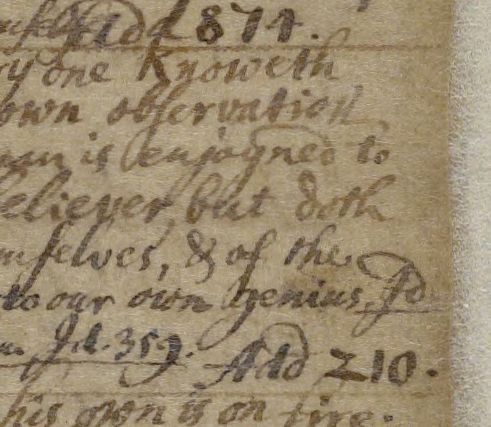 mselves Add 874.
ry one Knoweth
own observation
man is enjoyned to
believer, but doth
mselves, & of the
to our own genius, Id.
Id. 359. Add 210.
his own is on fire.